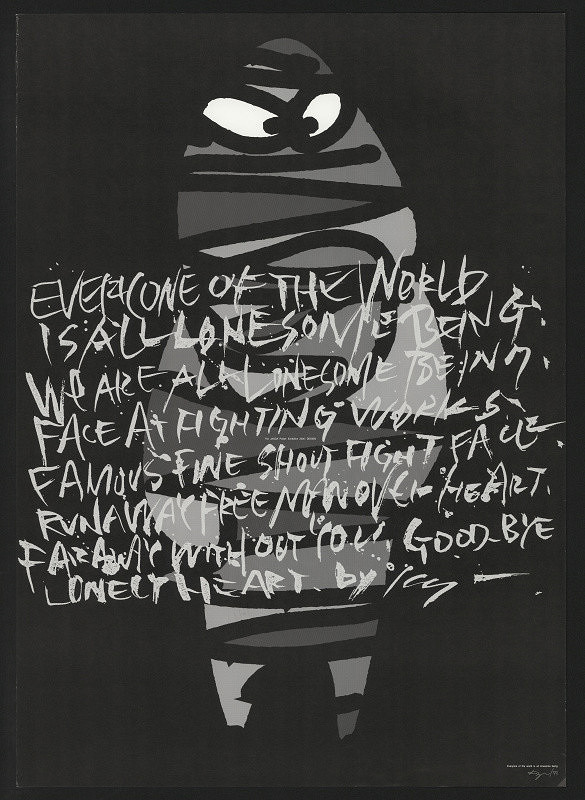 EVERYONE OF THE WORLD
IS ALL LONESOME BEING.
WE ARE ALL LONESOME BEING.
FACE AT FIGHTING WORKS.
FACE
FAMOUS FINE SHOUT FIGHT
RUNAWAY FREE MAN OVER HEART.
FARAWAY WITHOUT YOU GOOD-BYE
LONELY HEART. by
Everyone of the world is all lonesome being.